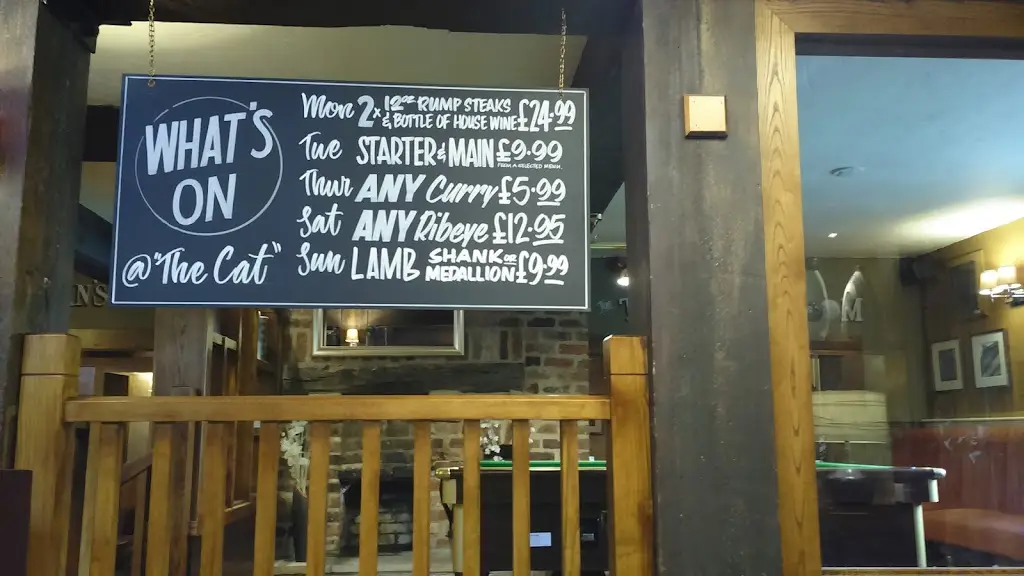 WHAT'S
ON
@ "The Cat"
Mon 2x 12oz RUMP STEAKS & BOTTLE OF HOUSE WINE £24.99
Tue STARTER & MAIN £9.99
FROM A SELECTED MENU.
Thur ANY Curry £5.99
Sat ANY Ribeye £12.95
Sun LAMB SHANK OR MEDALLION £9.99
NS
M